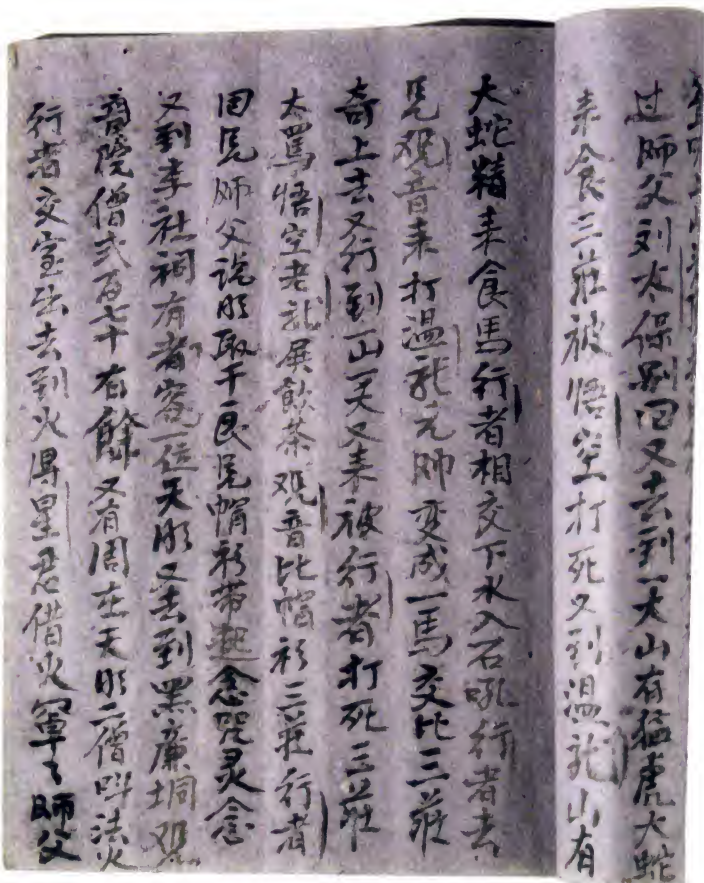 过师父刘太保别回又去到一大山有猛虎大蛇
来食三莊被悟空打死又到温龍山有
大蛇精来食馬行者相交下水入石吼行者去
見观音来打温龍元帅变成一馬交比三莊
奇上去又行到一山一天又来被行者打死三莊
大罵悟空老龍屏飲茶观音比帽衫三莊行者
回見师父说明取干良見帽衫帯起念咒灵念
又到李社祠有者窓一位天明又去到黑廉垌观
音院僧弍百七十右餘又有周在天明二僧叫法火
行者交宝出去到火淂星君借火罩〻师父